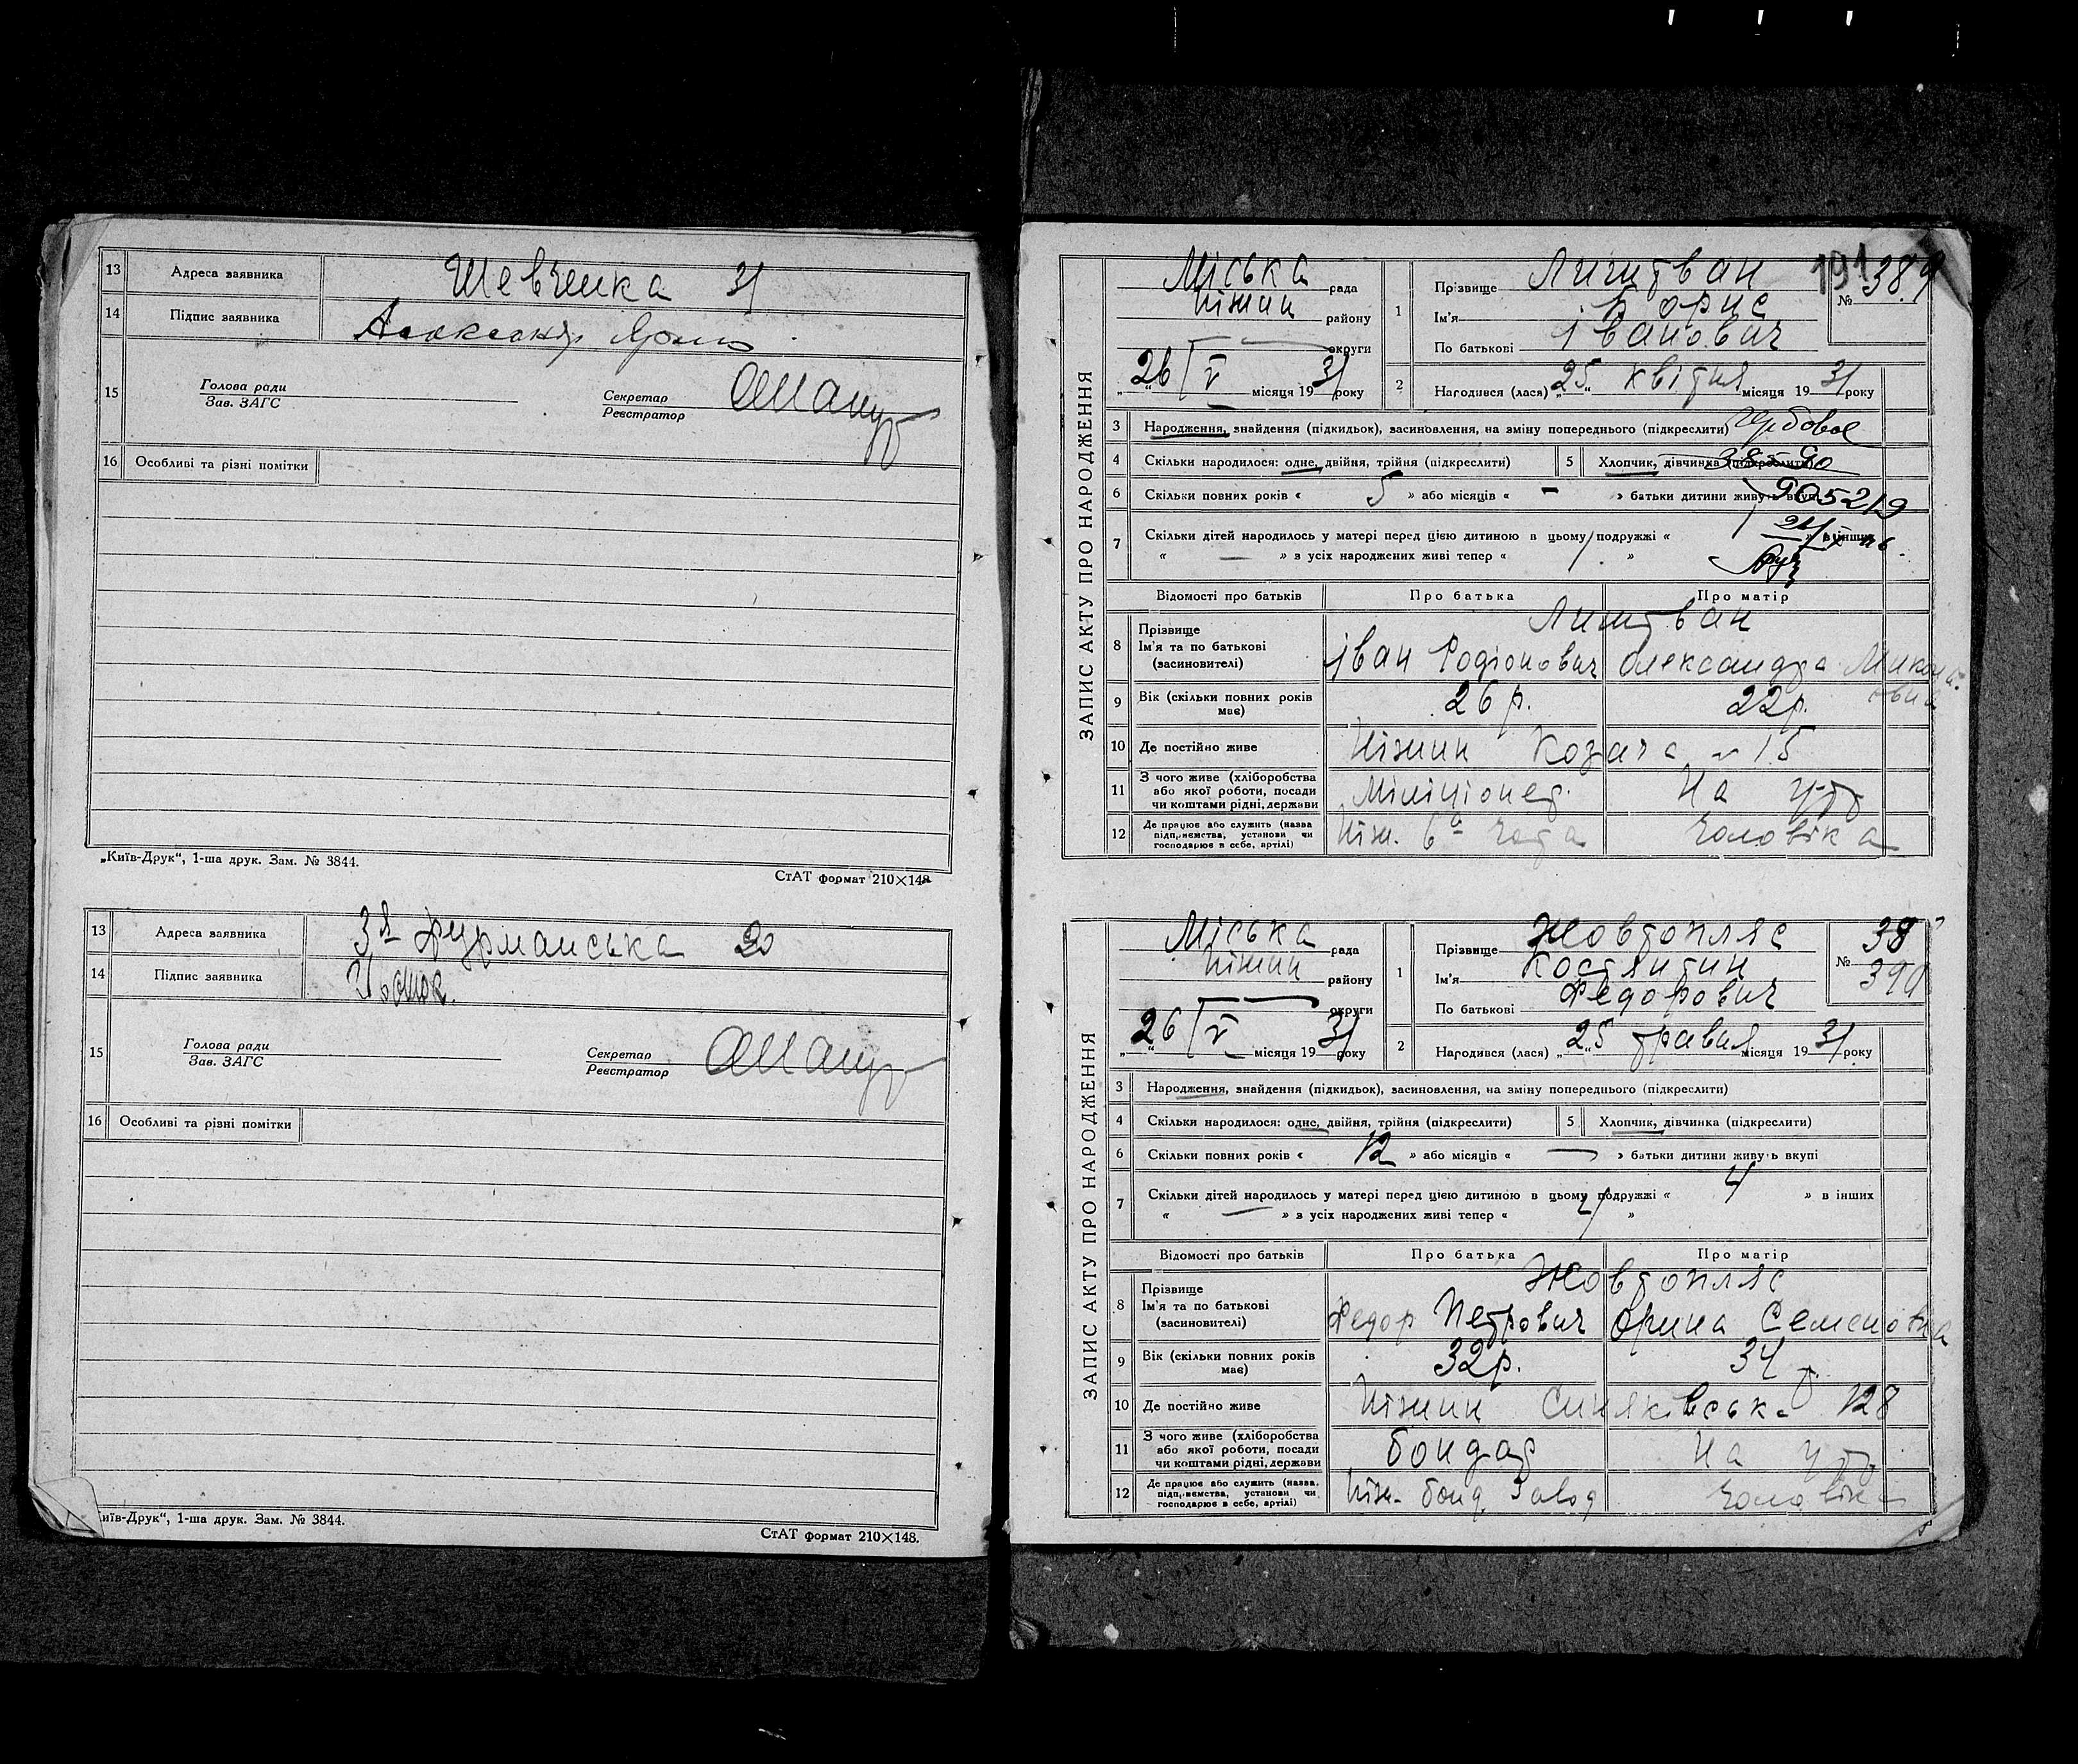 13 Адреса заявника Шевченка 31
14 Підпис заявника
15 Голова ради
Зав. ЗАГС
Секретар
Реєстратор
16 Особливі та різні помітки
„Київ-Друк“, 1-ша друк. Зам. № 3844.
СтАТ формат 210×148
13 Адреса заявника Фурманська 20
14 Підпис заявника
15 Голова ради
Зав. ЗАГС
Секретар
Реєстратор
16 Особливі та різні помітки
иїв-Друк“, 1-ша друк. Зам. № 3844.
СтАТ формат 210×148.
ЗАПИС АКТУ ПРО НАРОДЖЕННЯ
Міська рада
Ніжин району
округи
„26“ V місяця 1931 року
191
№ 389
1 Прізвище Лиштван
Ім'я Борис
По батькові Іванович
2 Народився (лася) „25“ квітня місяця 1931 року
3 Народження, знайдення (підкидьок), засиновлення, на зміну попереднього (підкреслити)
4 Скільки народилося: одне, двійня, трійня (підкреслити)
5 Хлопчик, дівчинка (підкреслити)
6 Скільки повних років « 5 » або місяців « - » батьки дитини живуть вкупі
905219
7 Скільки дітей народилось у матері перед цією дитиною в цьому подружжі « » в інших
« — » з усіх народжених живі тепер « »
Відомості про батьків Про батька Про матір
8 Прізвище
Ім'я та по батькові
(засиновителі)
Лиштван
Іван Родіонович Олександра
9 Вік (скільки повних років має) 26 р. 22 р.
10 Де постійно живе Ніжин Козача 15
11 З чого живе (хліборобства або якої роботи, посади чи коштами рідні, держави Міліціонер. На утр
12 Де працює або служить (назва підприємства, установи чи господарює в себе, артілі) Ніж. чоловіка
ЗАПИС АКТУ ПРО НАРОДЖЕННЯ
Міська рада
Ніжин району
округи
„26“ V місяця 1931 року
№ 390
1 Прізвище Жовтопляс
Ім'я Костянтин
По батькові Федорович
2 Народився (лася) „25“ травня місяця 1931 року
3 Народження, знайдення (підкидьок), засиновлення, на зміну попереднього (підкреслити)
4 Скільки народилося: одне, двійня, трійня (підкреслити)
5 Хлопчик, дівчинка (підкреслити)
6 Скільки повних років « 12 » або місяців « — » батьки дитини живуть вкупі
7 Скільки дітей народилось у матері перед цією дитиною в цьому подружжі « 4 » в інших
« — » з усіх народжених живі тепер « »
Відомості про батьків Про батька Про матір
8 Прізвище
Ім'я та по батькові
(засиновителі)
Жовтопляс
Федор Петрович Орина Семеновна
9 Вік (скільки повних років має) 32 р. 34
10 Де постійно живе Ніжин Синяківськ. 128
11 З чого живе (хліборобства або якої роботи, посади чи коштами рідні, держави бондар На утр
12 Де працює або служить (назва підприємства, установи чи господарює в себе, артілі) Ніж. бонд. завод чоловіка